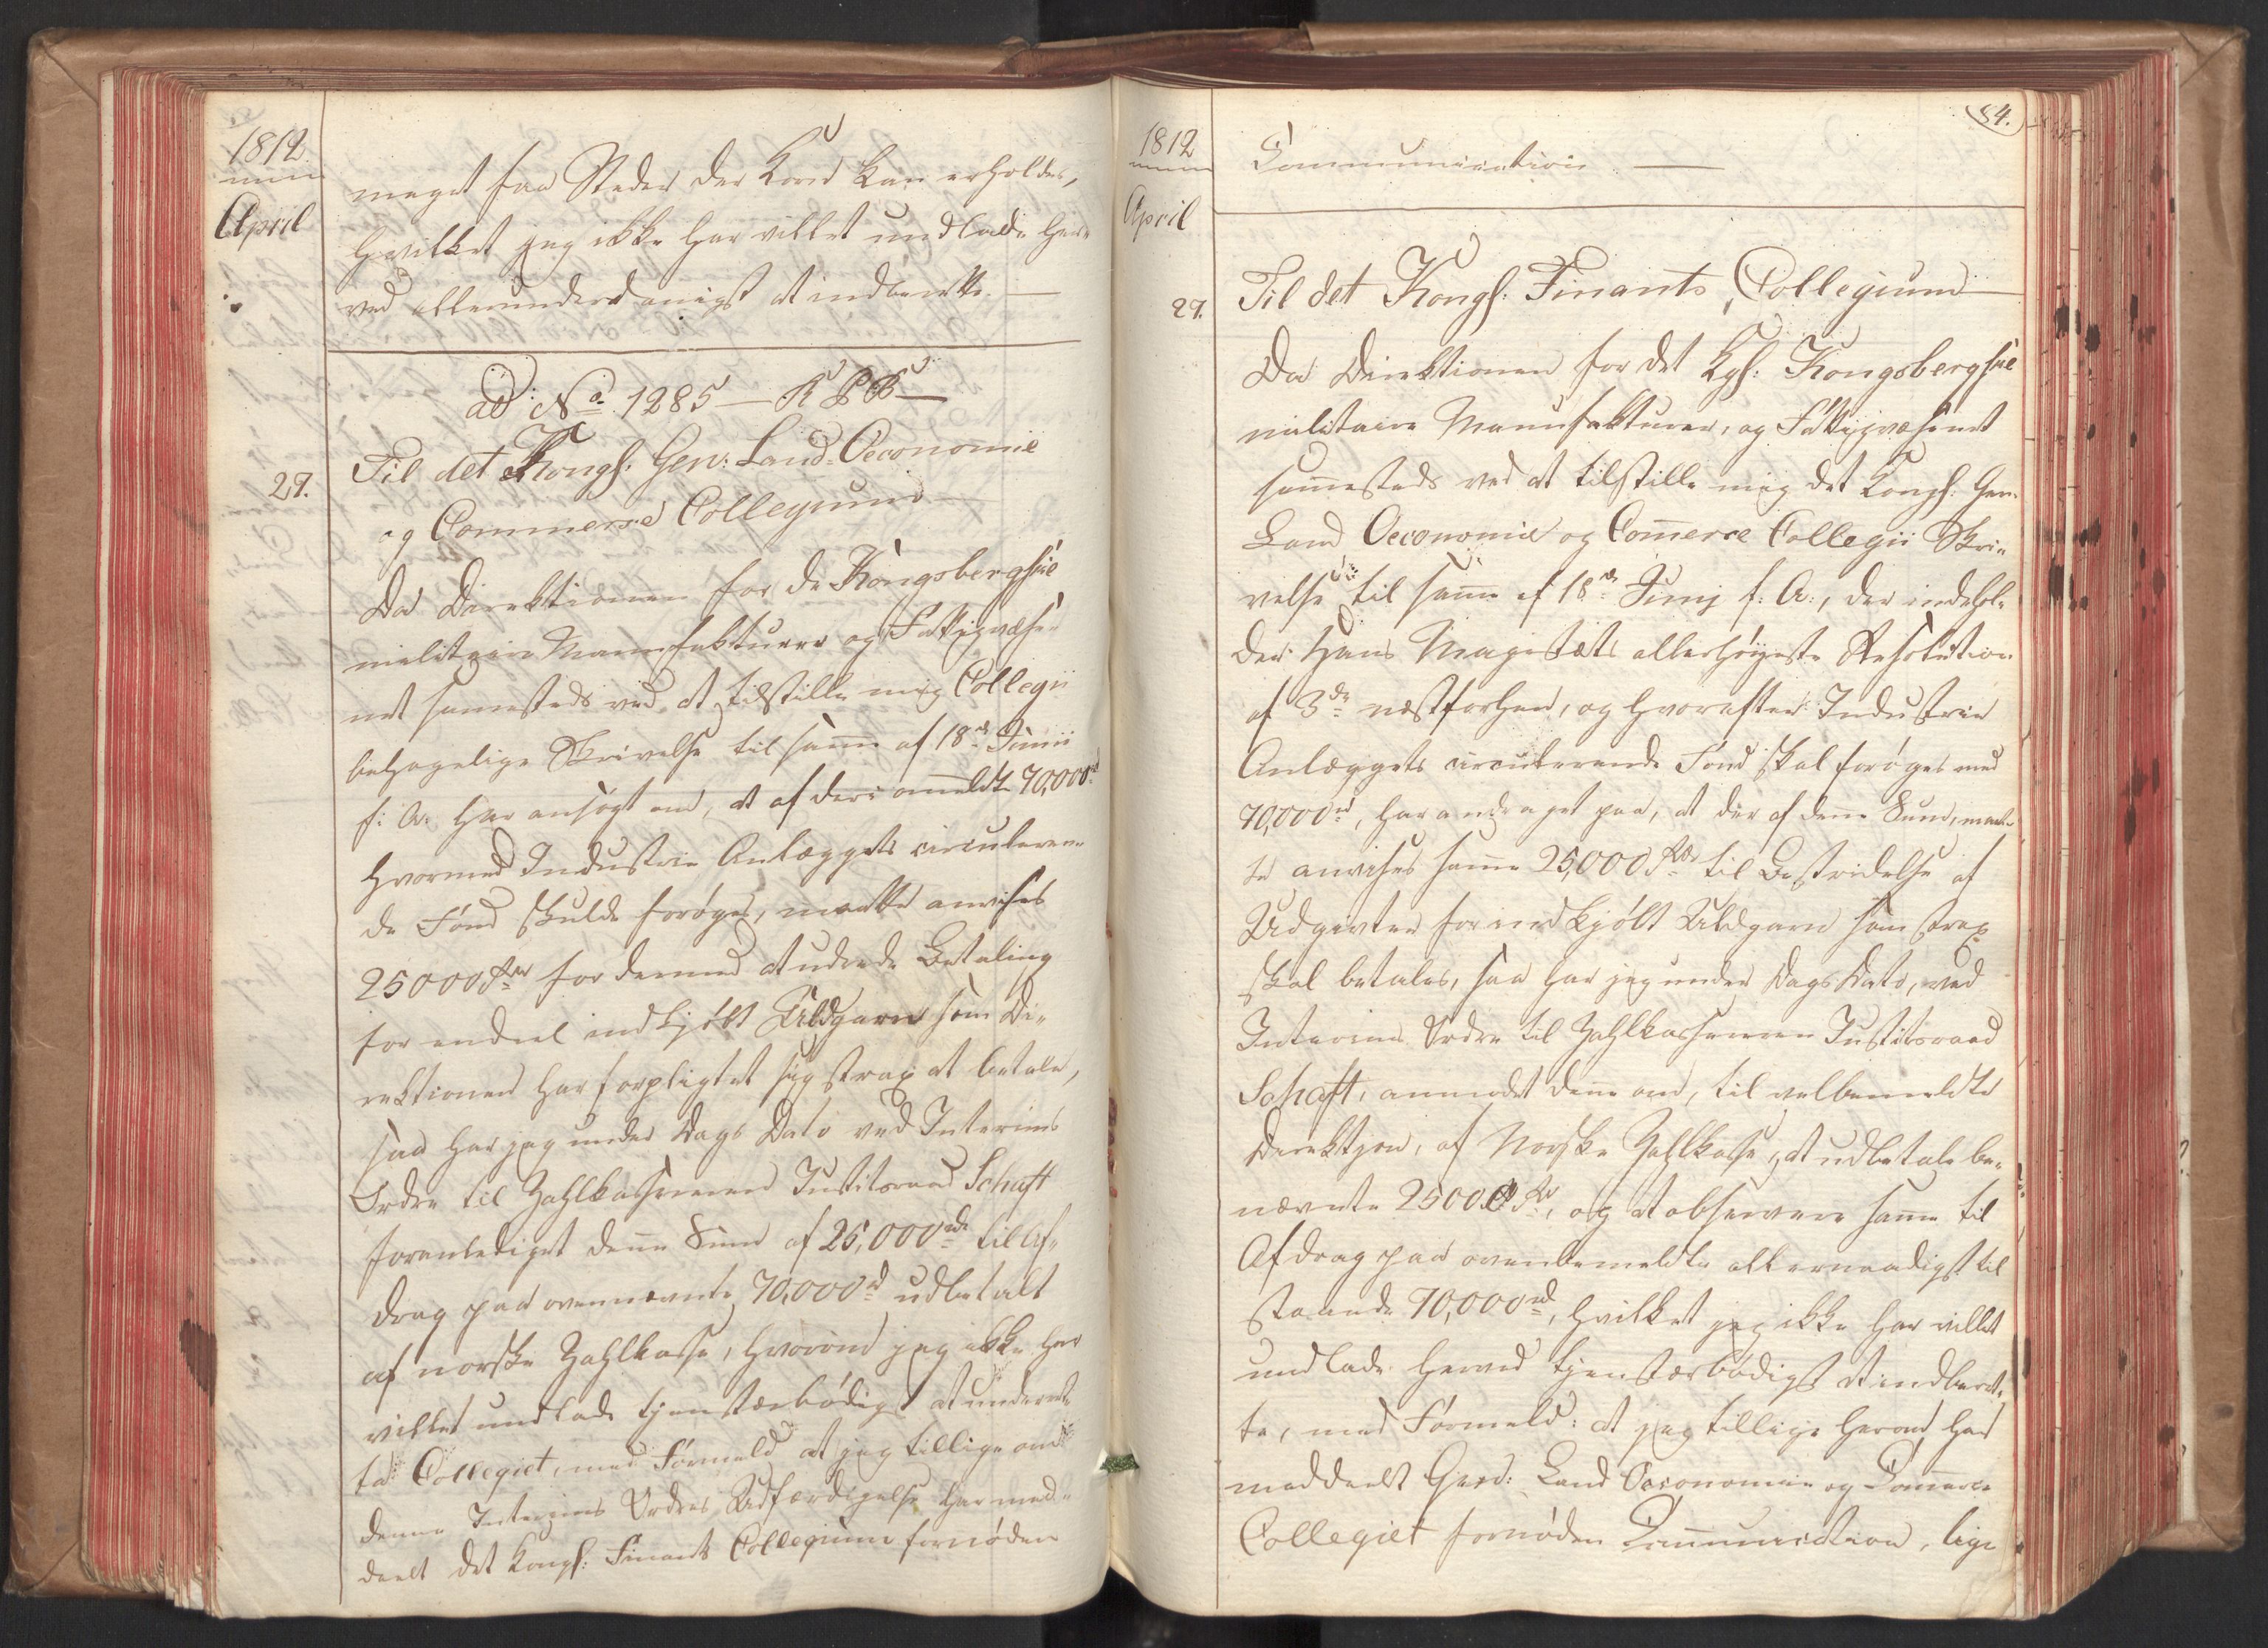 1812
April
meget faa Steder der Korn kan erholdes,
hvilket jeg ikke har villet undlade her-
ved allerunderdanigst at indberette. —
ad No 1285 — R P B —
27.
Til det Kongl. Gen: Land-Oeconomie
og Commerce Collegium —
Da Direktionen for de Kongsbergske
militaire Manufakturer og Fattigvæse-
net sammesteds ved at tilstille mig Collegii
behagelige Skrivelse til samme af 18de Junii
f: A. har ansøgt om, at af deri ommeldte 70,000 rd
hvormed Industrie Anlæggets circuleren-
de Fond skulde forøges, maatte anvises
25000 Rdr for dermed at udrede Betaling
for endeel indkjøbt Uldgarn som Di-
rektionen har forpligtet sig strax at betale,
saa har jeg under Dags Dato ved Interims
Ordre til Zahlkasserer Justitsraad Schaft
foranlediget denne Sum af 25,000 rd til Af-
drag paa ovennævnte 70,000 rd udbetalt
af norske Zahlkasse, hvorom jeg ikke har
villet undlade tjenstærbødigst at underret-
te Collegiet, med Formeld at jeg tillige om
denne Interims Ordres Udfærdigelse har med-
deelt det Kongl: Finants Collegium fornøden
84.
1812
April
Communication. —
27.
Til det Kongl: Finants Collegium —
Da Direktionen for det Kgl: Kongsbergske
militaire Manufakturer, og Fattigvæsenet
sammesteds ved at tilstille mig det Kongl: Gen:
Land Oeconomie og Commerce Collegii Skri-
velse til samme af 18de Junj f: A:, der indehol-
der Hans Majestæts allerhøieste Resolution
af 3de næstforhen, og hvorefter Industrie
Anlæggets circulerende Fond skal forøges med
70,000 rd, har andraget paa, at der af denne Sum, maat-
te anvises samme 25,000 Rdr til Bestridelse af
Udgivter for indkjøbt Uldgarn som strax
skal betales, saa har jeg under Dags Dato, ved
Interims Ordre til Zahlkasserer Justitsraad
Schaft, anmodet denne om, til velbemeldte
Direktion, af Norske Zahlkasse, at udbetale be-
nævnte 25000 Rd, og at observere samme til
Afdrag paa ovenbemeldte allernaadigst til
staaede 70,000 rd, hvilket jeg ikke har villet
undlade herved tjenstærbødigst at indberet-
te, med Formeld: at jeg tillige herom har
meddeelt Gen: Land Oeconomie og Commerce
Collegiet fornøden Communication, lige